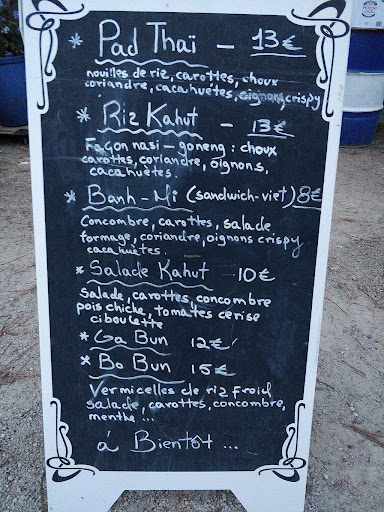 * Pad Thaï — 13€
nouilles de riz, carottes, choux
coriandre, cacahuetes, oignons crispy
* Riz Kahut - 13€
Façon nasi - goneng : choux
carottes, coriandre, oignons,
cacahuetes.
* Banh - Mi (sandwich-viet) 8€
Concombre, carottes, salade
formage, coriandre, oignons crispy
cacahuetes.
* Salade Kahut 10€
Salade, carottes, concombre
pois chiche, tomates cerise
ciboulette
* Ga Bun 12€
* Bo Bun 15€
Vermicelles de riz froid
salade, carottes, concombre,
menthe ...
á Bientôt ...